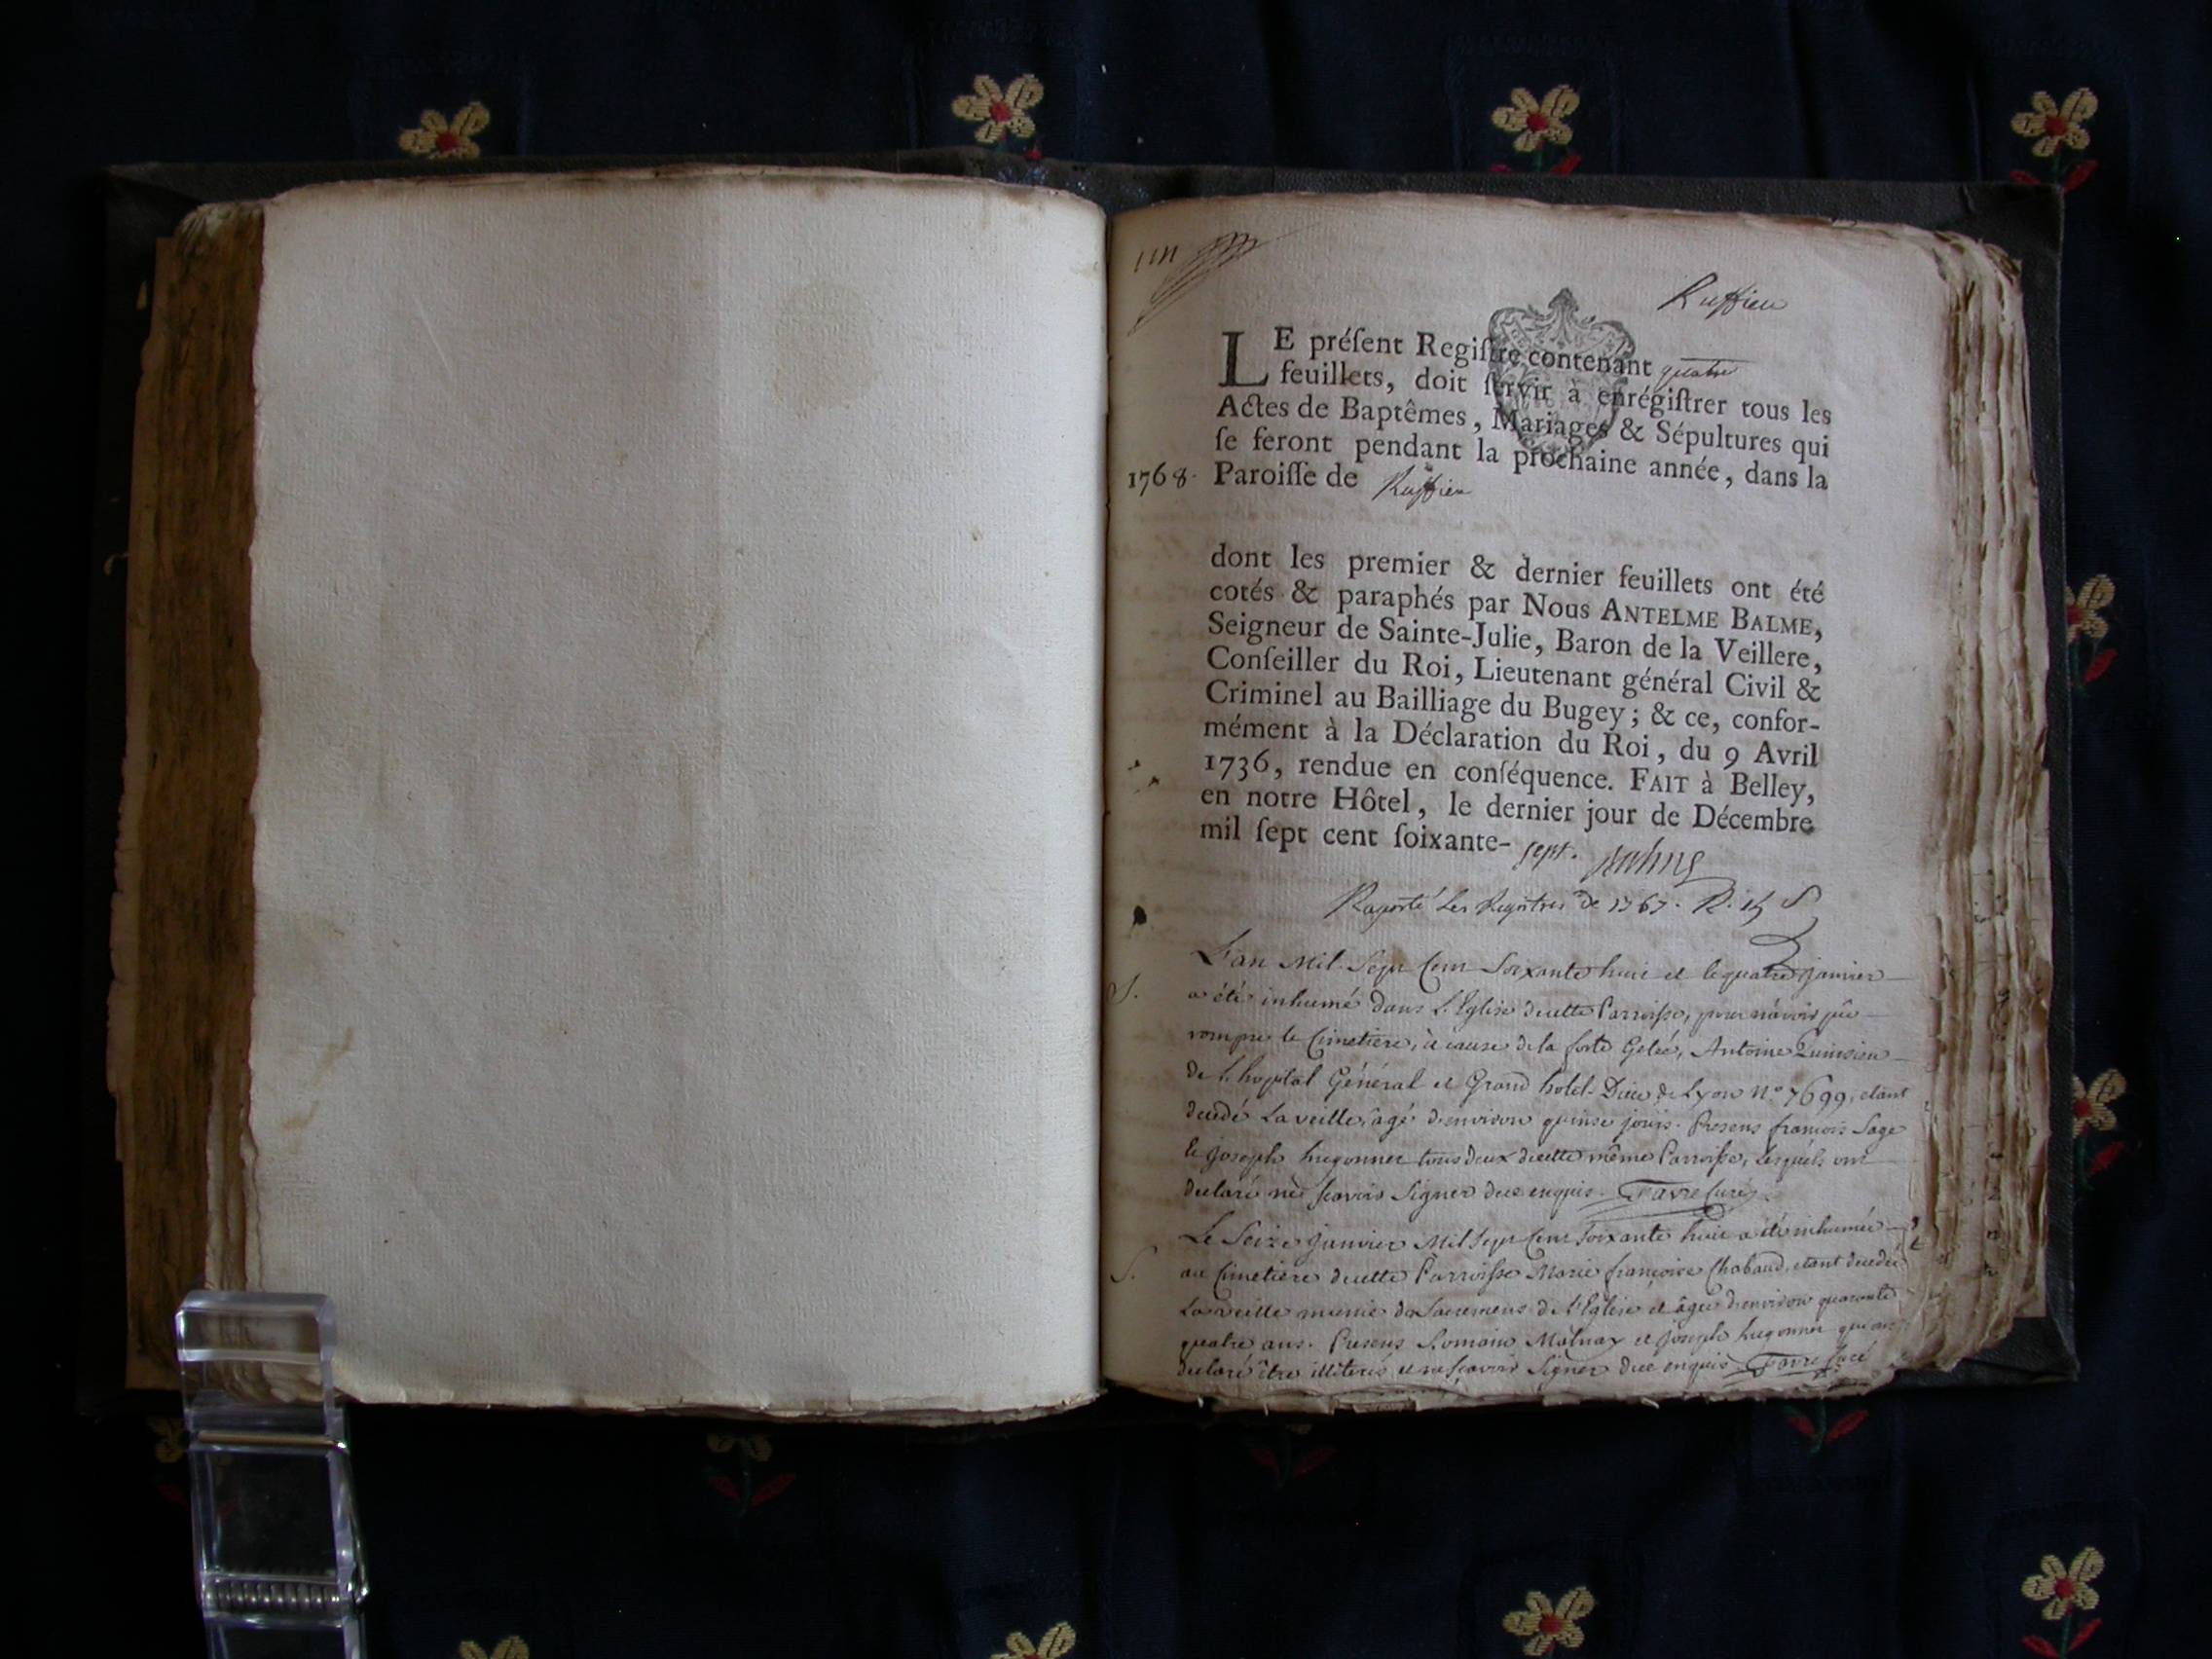 Ruffieu
LE préſent Regiſtre contenant quatre
feuillets, doit ſervir à enrégiſtrer tous les
Actes de Baptêmes, Mariages & Sépultures qui
ſe feront pendant la prochaine année, dans la
1768. Paroiſſe de Ruffieu
dont les premier & dernier feuillets ont été
cotés & paraphés par Nous ANTELME BALME,
Seigneur de Sainte-Julie, Baron de la Veillere,
Conſeiller du Roi, Lieutenant général Civil &
Criminel au Bailliage du Bugey; & ce, confor-
mément à la Déclaration du Roi, du 9 Avril
1736, rendue en conſéquence. FAIT à Belley,
en notre Hôtel, le dernier jour de Décembre
mil ſept cent ſoixante- sept. Balme
Raporté Les Registres de 1767.
L'an Mil Sept Cent Soixante huit et le quatre janvier
S. a été inhumé dans L'Eglise decette Parroisse, pour n'avoir pû
rompre le Cimetiere, à cause de la forte Gelée, Antoine
de L'hopital Général et Grand hotel-Dieu de Lyon N.° 7699, etant
decedé La veille, agé d'environ quinse jours. Presens francois Sage
et joseph hugonnet tous deux decette même Parroisse, Lesquels ont
declaré ne sçavoir Signer de ce enquis. Favre Curé
Le Seize janvier Mil Sept Cent Soixante huit a été inhumée
S. au Cimetiere decette Parroisse Marie françoise Chaband, etant decedée
La veille munie des Sacremens de l'Eglise et âgée d'environ quarante
quatre ans. Presens Romain Malnay et joseph hugonnet qui ont
declaré être illiterés et ne sçavoir Signer de ce enquis Favre Curé